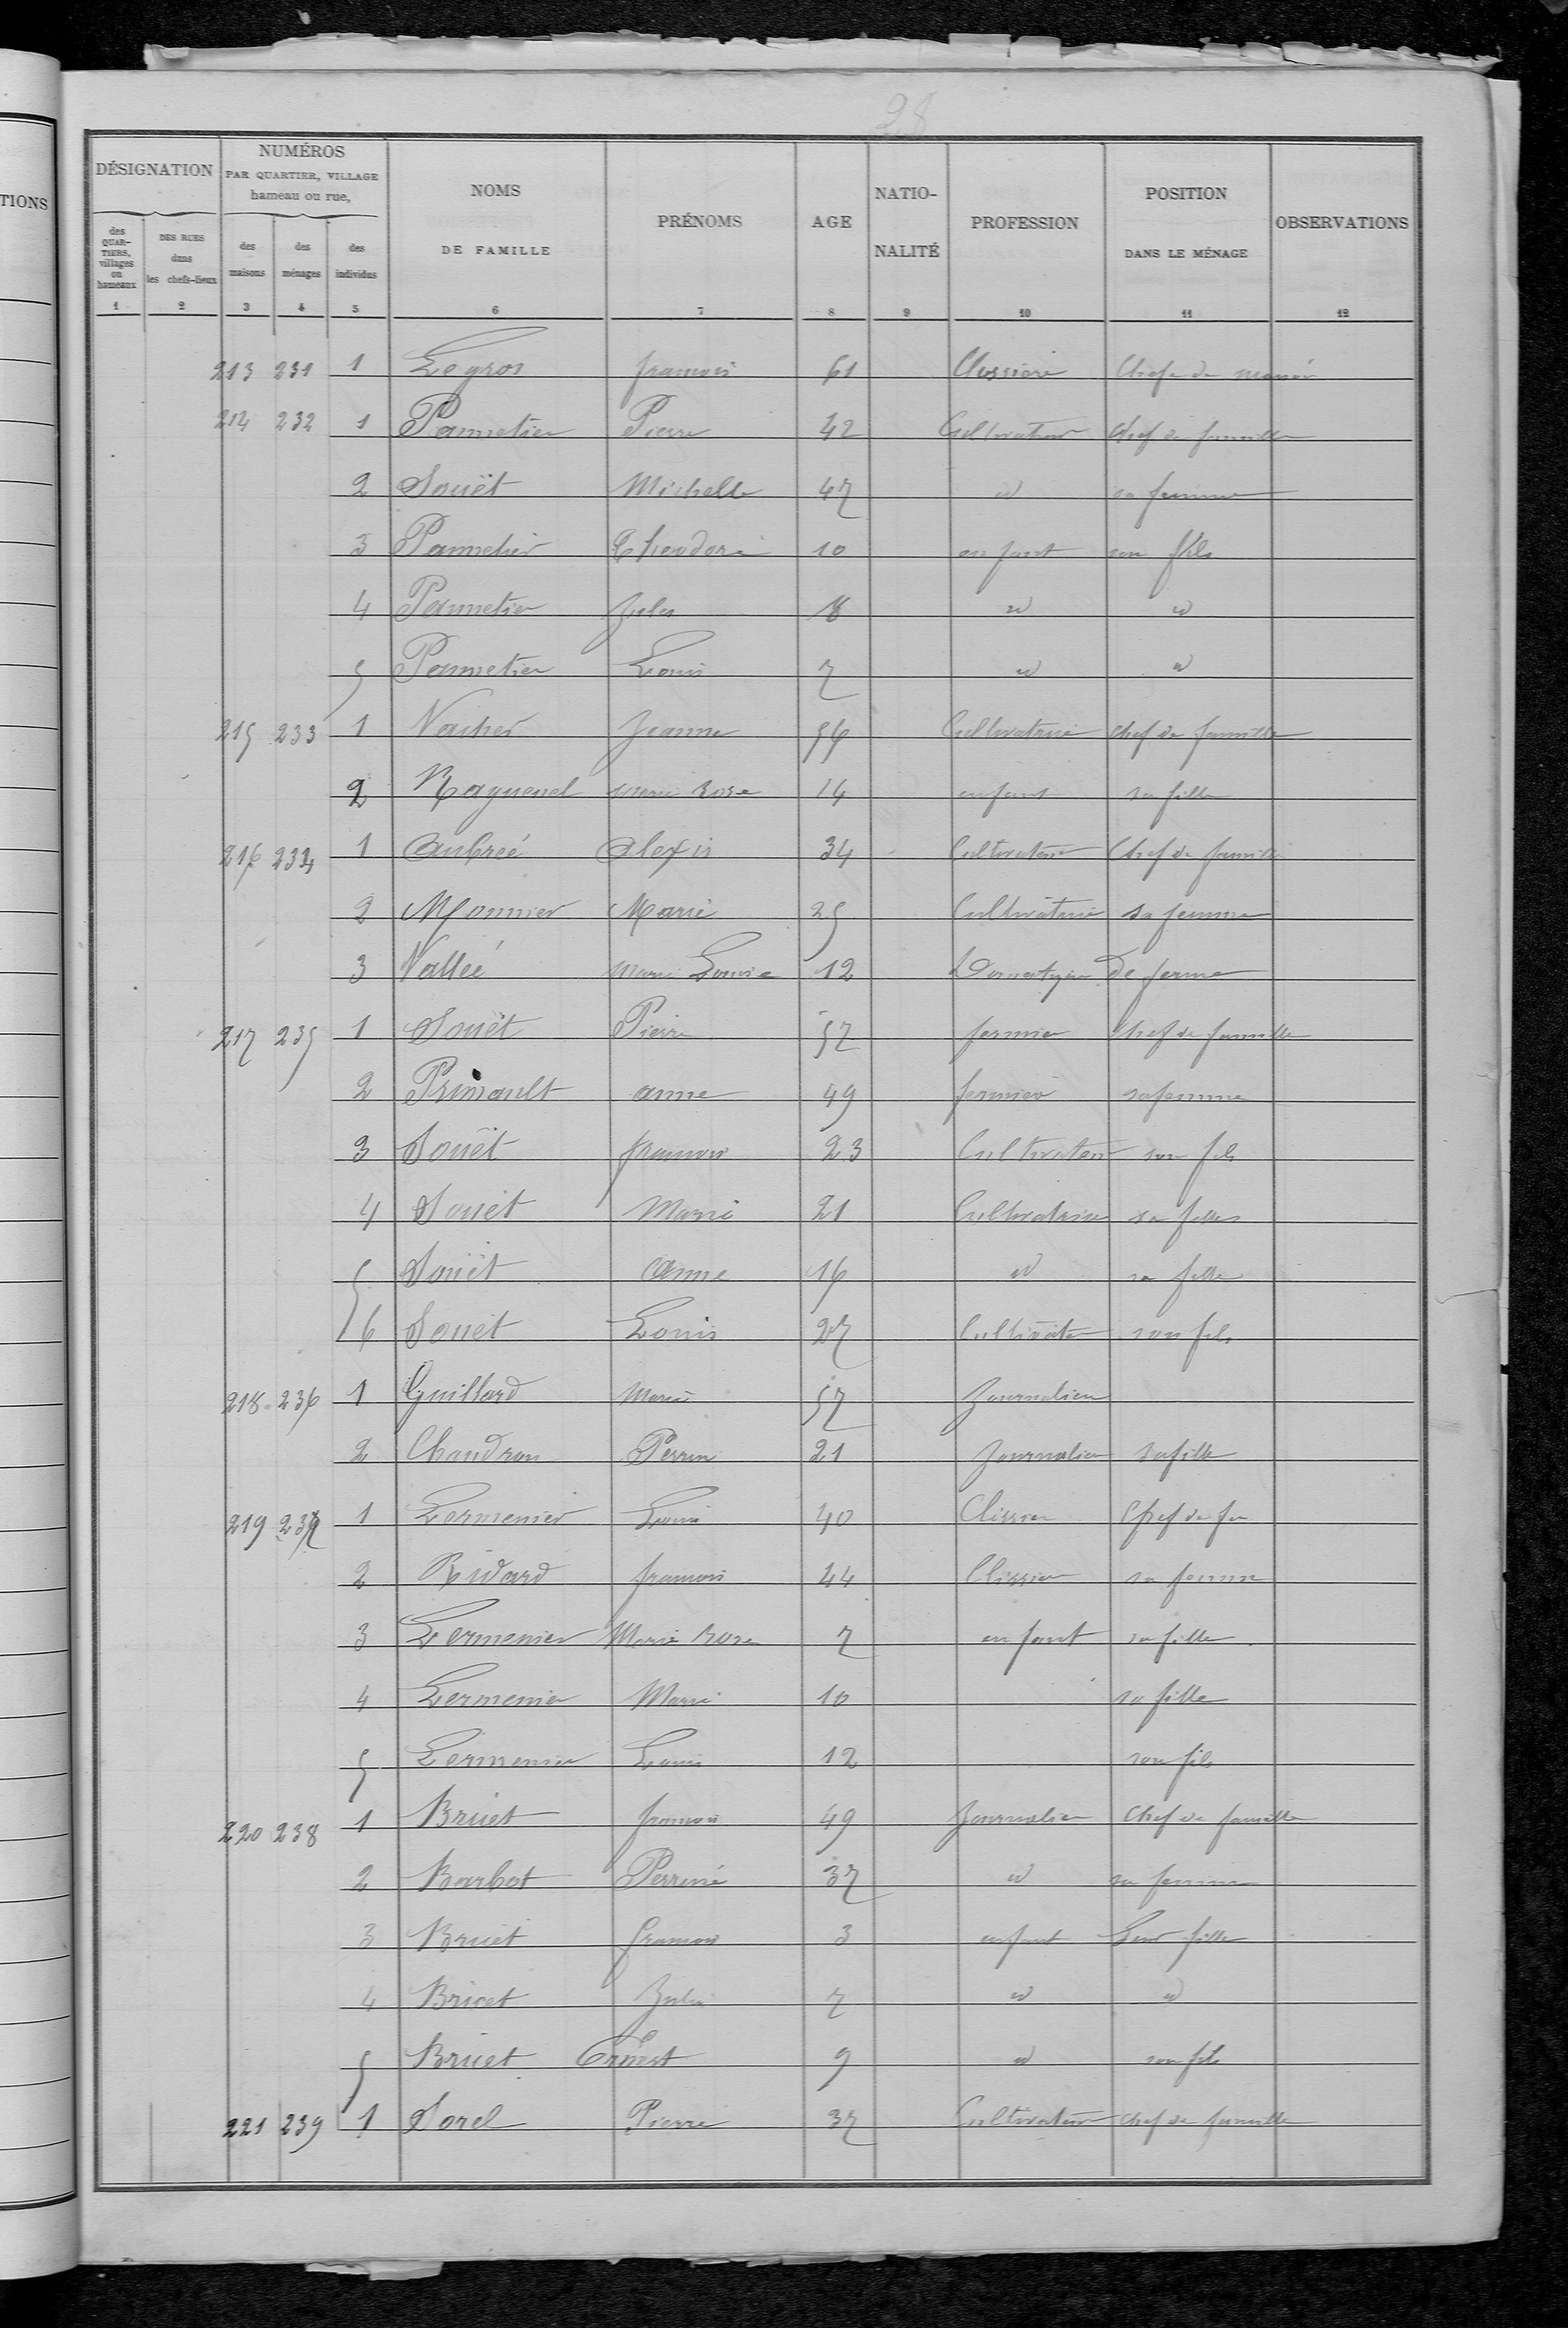 28
TIONS
DÉSIGNATION NUMÉROS PAR QUARTIER, VILLAGE hameau ou rue, NOMS DE FAMILLE PRÉNOMS AGE NATIO-NALITÉ PROFESSION POSITION DANS LE MÉNAGE OBSERVATIONS
des QUAR-TIERS, villages ou hameaux DES RUES dans les chefs-lieux des maisons des ménages des individus
1 2 3 4 5 6 7 8 9 10 11 12
213 231 1 Legros francois 61 Clissière Chef de
214 232 1 Pannetier Pierre 42 Cultivateur chef de famille
2 Souët Michelle 47 id sa femme
3 Pannetier Theodore 10 enfant son fils
4 Pannetier Jules 8 id id
5 Pannetier Louis 7 id id
215 233 1 Vacher Jeanne 56 Cultivatrice chef de famille
2 Raguenel marie Rose 14 enfant sa fille
216 234 1 Aubreé Alexis 34 Cultivateur Chef de famille
2 Monnier Marie 25 Cultivatrice sa femme
3 Valleé marie Louise 12 De ferme
217 235 1 Souët Pierre 57 fermier chef de famille
2 Primault anne 49 fermier sa femme
3 Souët francois 23 Cultivateur son fils
4 Souët Marie 21 Cultivatrice sa fille
5 Souët Anne 16 id sa fille
6 Souët Louis 27 Cultivate son fils
218 236 1 Guillard Marie 57 Journalien
2 Chaudron Perrine 21 Journalier sa fille
219 237 1 Lermenier Louis 40 Clissier Chef de fa
2 Ridard francois 44 Clissier sa femme
3 Lermenier Marie Rose 7 enfant sa fille
4 Lermenier Marie 10 sa fille
5 Lermenier Louis 12 son fils
220 238 1 Briet francois 49 Journalier Chef de famille
2 Barbot Perrine 37 id sa femme
3 Briet francois 3 enfant Leur fille
4 Briet Julie 7 id id
5 Briet Ernest 9 id son fils
221 239 1 Sorel Pierre 37 Cultivateur chef de famille